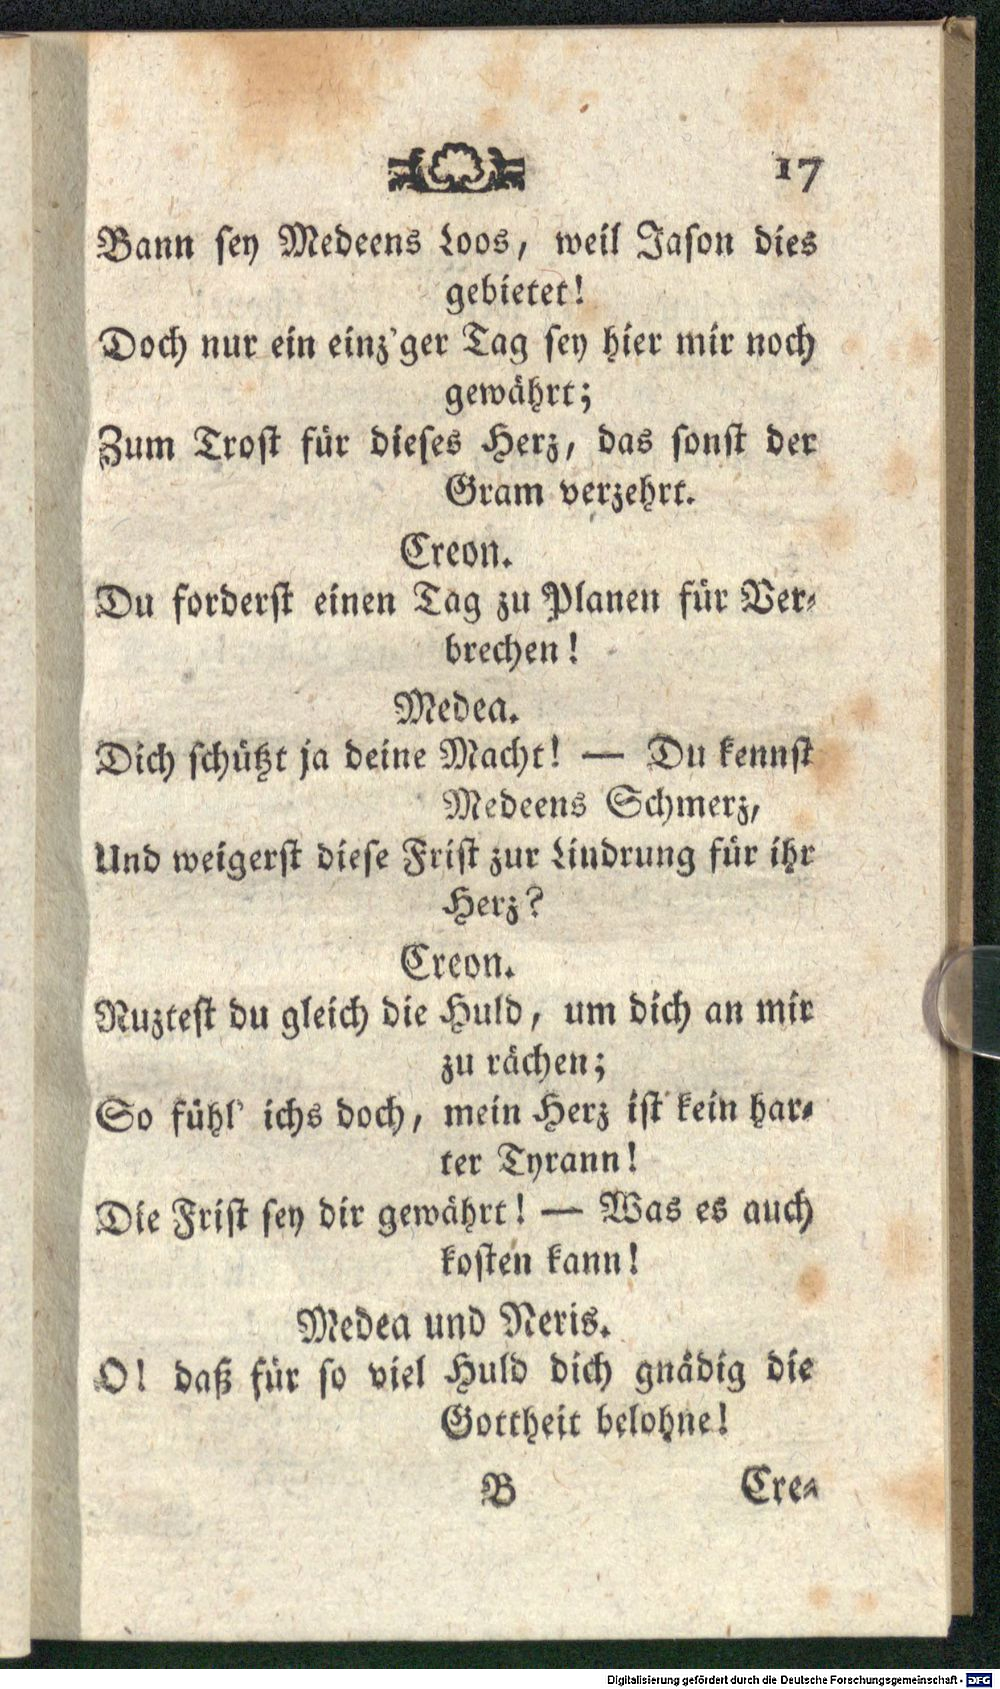 17
Bann sey Medeens Loos, weil Jason dies
gebietet!
Doch nur ein einz'ger Tag sey hier mir noch
gewährt;
Zum Trost für dieses Herz, das sonst der
Gram verzehrt.
Creon.
Du forderst einen Tag zu Planen für Ver-
brechen!
Medea.
Dich schützt ja deine Macht! — Du kennst
Medeens Schmerz,
Und weigerst diese Frist zur Lindrung für ihr
Herz?
Creon.
Nuztest du gleich die Huld, um dich an mir
zu rächen;
So fühl' ichs doch, mein Herz ist kein har-
ter Tyrann!
Die Frist sey dir gewährt! — Was es auch
kosten kann!
Medea und Neris.
O! daß für so viel Huld dich gnädig die
Gottheit belohne!
B Cre-
Digitalisierung gefördert durch die Deutsche Forschungsgemeinschaft - DFG